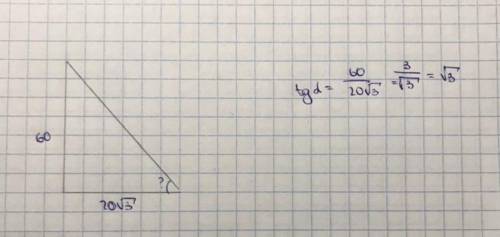 60
20√3
?
tg α = 60/20√3 = 3/√3 = √3